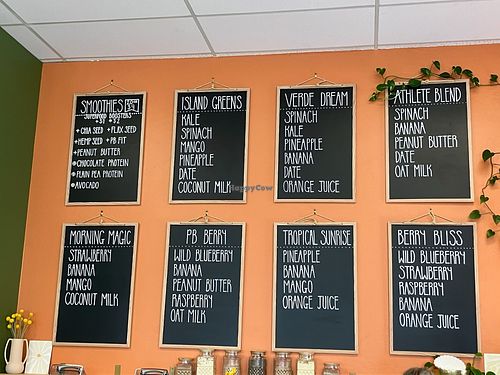 SMOOTHIES
SUPERFOOD BOOSTERS
+ $1 • $2
+ CHIA SEED + FLAX SEED
+ HEMP SEED + PB FIT
+ PEANUT BUTTER
CHOCOLATE PROTEIN
PLAIN PEA PROTEIN
AVOCADO
ISLAND GREENS
KALE
SPINACH
MANGO
PINEAPPLE
DATE
COCONUT MILK
VERDE DREAM
SPINACH
KALE
PINEAPPLE
BANANA
DATE
ORANGE JUICE
ATHLETE BLEND
SPINACH
BANANA
PEANUT BUTTER
DATE
OAT MILK
MORNING MAGIC
STRAWBERRY
BANANA
MANGO
COCONUT MILK
PB BERRY
WILD BLUEBERRY
BANANA
PEANUT BUTTER
RASPBERRY
OAT MILK
TROPICAL SUNRISE
PINEAPPLE
BANANA
MANGO
ORANGE JUICE
BERRY BLISS
WILD BLUEBERRY
STRAWBERRY
RASPBERRY
BANANA
ORANGE JUICE
HappyCow